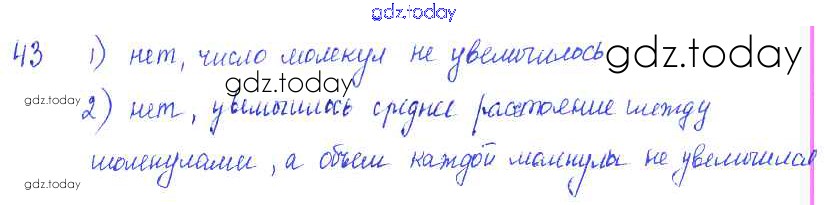 gdz.today
43 1) нет, число молекул не увеличилось gdz.today
gdz.today
gdz.today 2) нет, увеличилось среднее расстояние между
молекулами, а объем каждой молекулы не увеличился
gdz.today